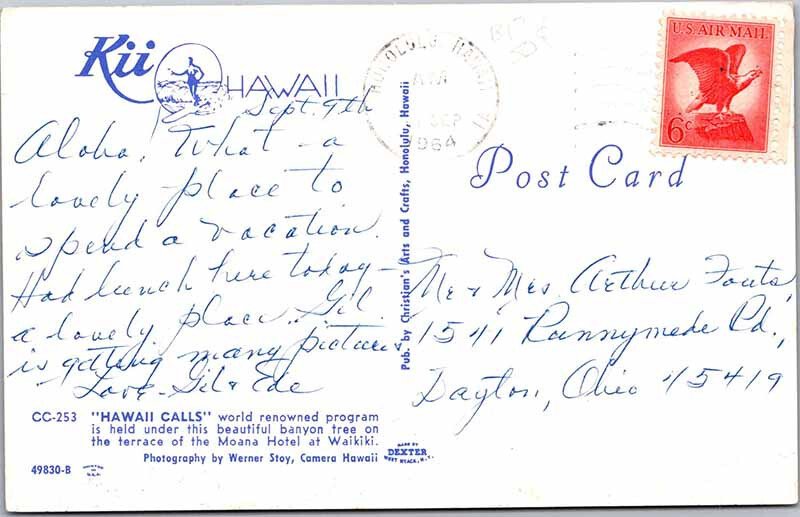 Kii
HAWAII
Sept. 9th
Aloha! What a
lovely place to
spend a vacation.
Had lunch here today -
a lovely place. Gil
is getting many pictures
Love - Gil & Ede
CC-253 "HAWAII CALLS" world renowned program
is held under this beautiful banyon tree on
the terrace of the Moana Hotel at Waikiki.
Photography by Werner Stoy, Camera Hawaii
49830-B
Pub. by Christian's Arts and Crafts, Honolulu, Hawaii
MADE BY
DEXTER
WEST NYACK, N.Y.
HONOLULU, HAWAII
AM
SEP
1964
U.S. AIR MAIL
6c
Post Card
Mr & Mrs. Arthur Fouts
1541 Runnymede Rd.,
Dayton, Ohio 45419